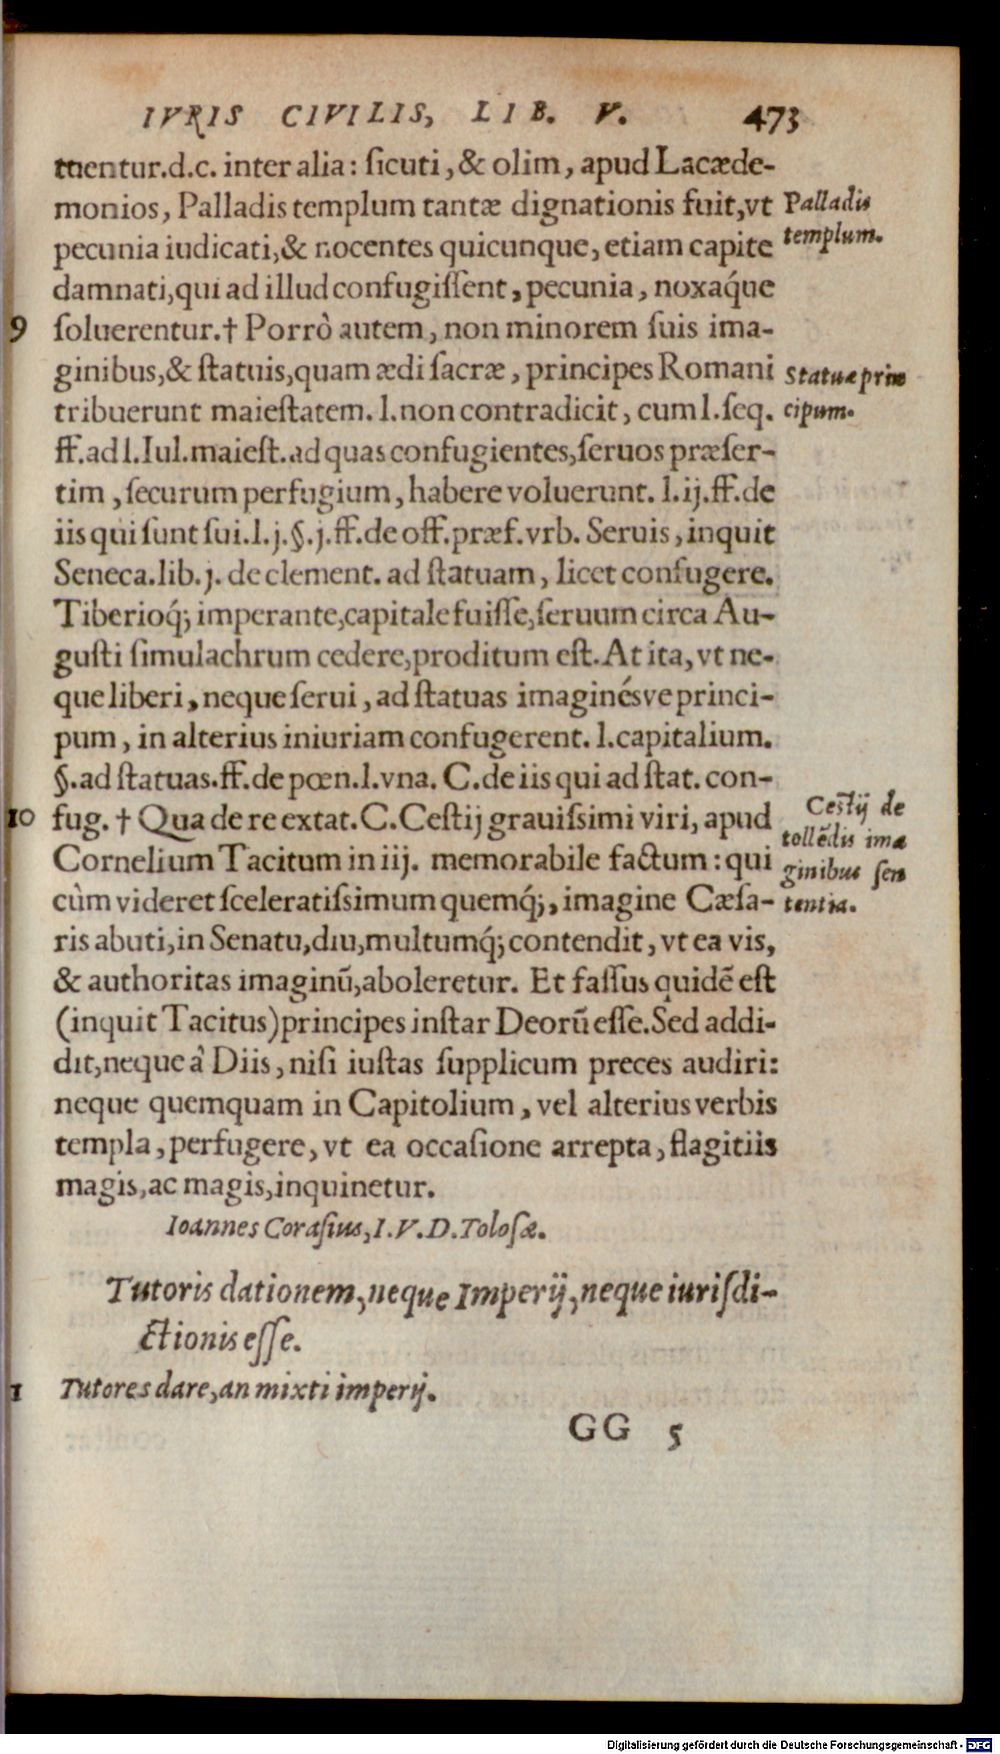 IVRIS CIVILIS, LIB. V. 473
tuentur.d.c. inter alia: ſicuti, & olim, apud Lacæde-
monios, Palladis templum tantæ dignationis fuit,vt
Palladis
templum.
pecunia iudicati,& nocentes quicunque, etiam capite
damnati,qui ad illud confugiſſent, pecunia, noxaq́ue
9 ſoluerentur.† Porrò autem, non minorem ſuis ima-
ginibus,& ſtatuis,quam ædi ſacræ, principes Romani
Statuæ prin
cipum.
tribuerunt maieſtatem. l. non contradicit, cum l. ſeq.
ff. ad l. Iul. maieſt. ad quas confugientes,ſeruos præſer-
tim, ſecurum perfugium, habere voluerunt. l. ij. ff. de
iis qui ſunt ſui. l. j. §. j. ff. de off. præf. vrb. Seruis, inquit
Seneca.lib. j. de clement. ad ſtatuam, licet confugere.
Tiberioq́; imperante,capitale fuiſſe,ſeruum circa Au-
guſti ſimulachrum cedere,proditum eſt. At ita, vt ne-
que liberi, neque ſerui, ad ſtatuas imaginésve princi-
pum, in alterius iniuriam confugerent. l. capitalium.
§. ad ſtatuas. ff. de pœn. l. vna. C. de iis qui ad ſtat. con-
10 fug. † Qua de re extat. C. Ceſtij grauiſsimi viri, apud
Ceſtij de
tollẽdis ima
ginibus ſen
tentia.
Cornelium Tacitum in iij. memorabile factum: qui
cùm videret ſceleratiſsimum quemq́;, imagine Cæſa-
ris abuti,in Senatu,diu,multumq́; contendit, vt ea vis,
& authoritas imaginũ,aboleretur. Et faſſus quidẽ eſt
(inquit Tacitus) principes inſtar Deorũ eſſe. Sed addi-
dit,neque à Diis, niſi iuſtas ſupplicum preces audiri:
neque quemquam in Capitolium, vel alterius verbis
templa, perfugere, vt ea occaſione arrepta, flagitiis
magis,ac magis,inquinetur.
Ioannes Coraſius, I. V. D. Toloſæ.
Tutoris dationem,neque Imperij,neque iuriſdi-
ctionis eſſe.
1 Tutores dare,an mixti imperij.
GG 5
Digitalisierung gefördert durch die Deutsche Forschungsgemeinschaft - DFG